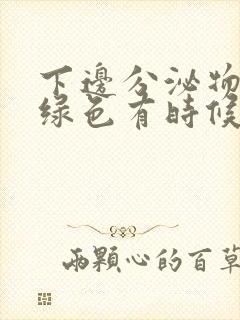 下邊分泌物
綠色有時候
兩顆心的百草